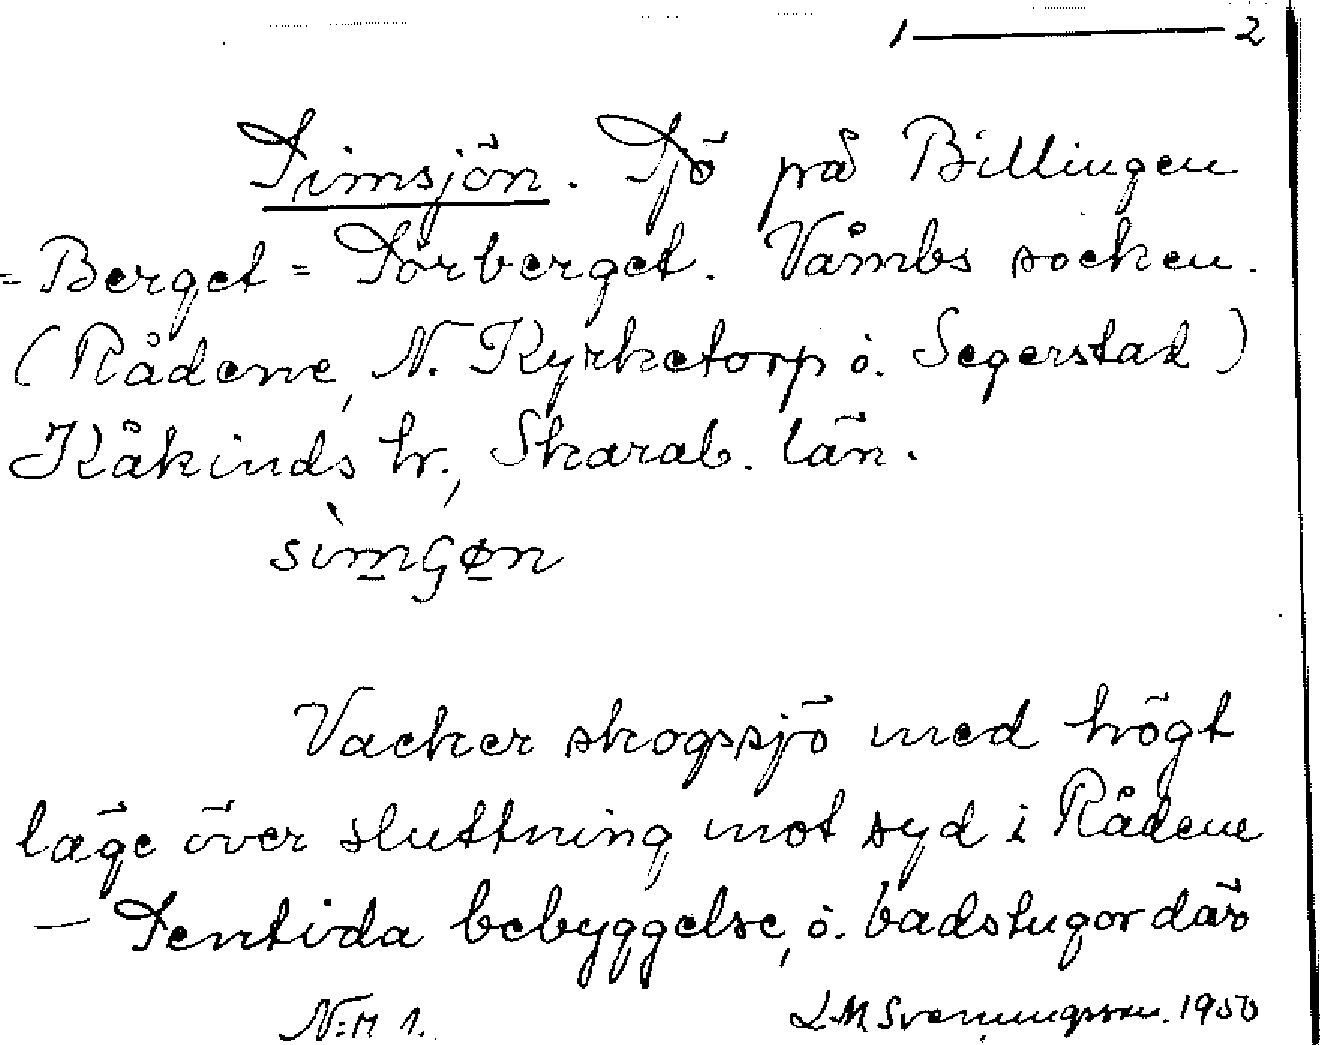 1 — 2
Simsjön. Sjö på Billingen
= Berget = Sörberget. Våmbs socken.
(Rådene, N. Kyrketorp o. Segerstad)
Kåkinds hr., Skarab. län.
sìmʃøn
Vacker skogssjö med högt
läge över sluttning mot syd i Rådene
— Sentida bebyggelse, o. badstugor där
N:r 1. L-M Svenungsson. 1950